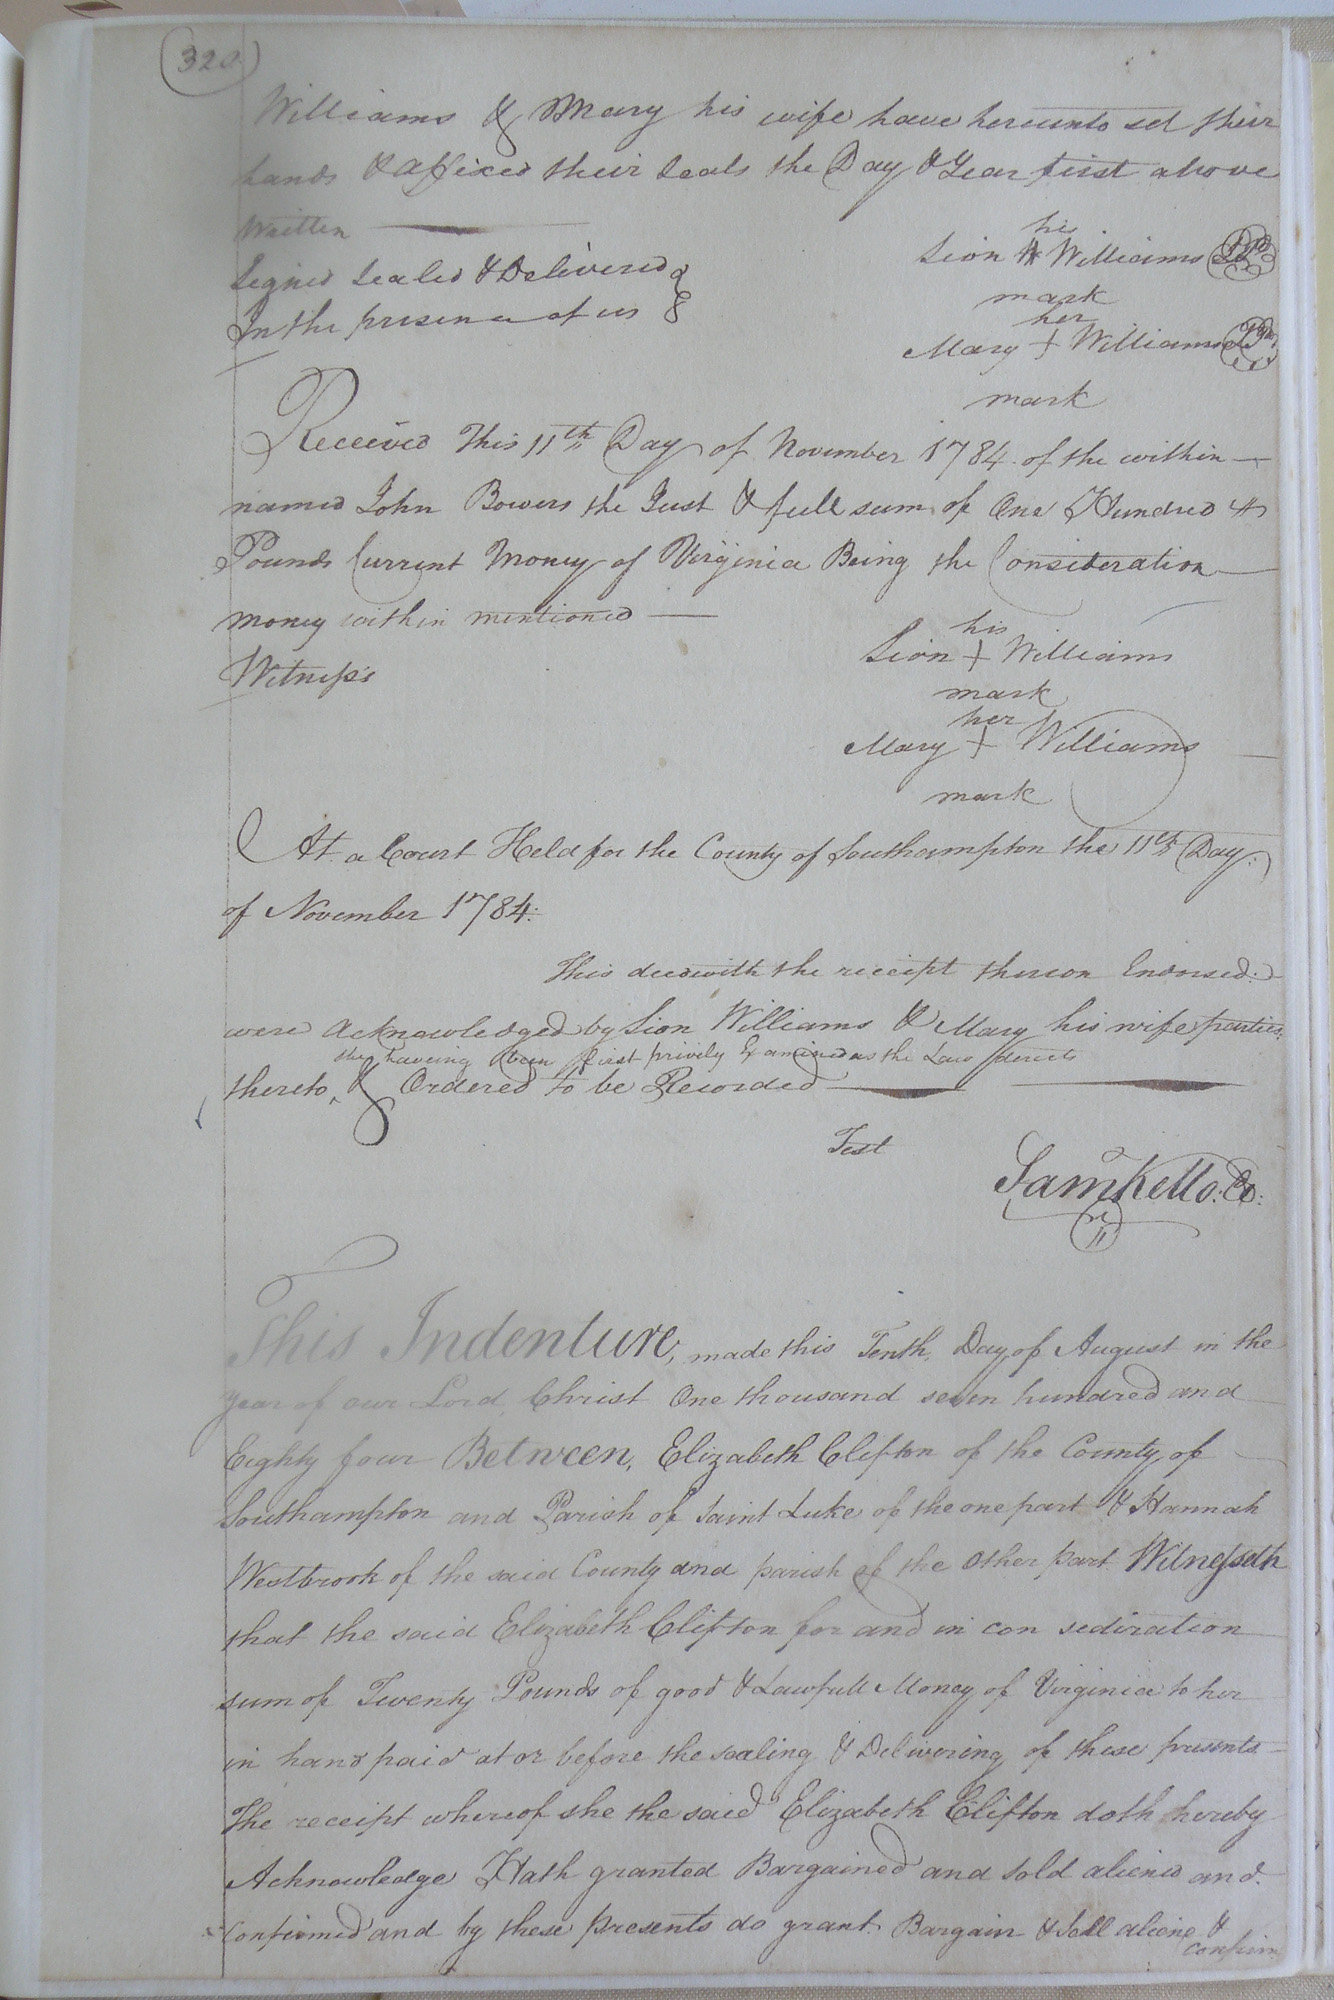 320
Williams & Mary his wife have hereunto set their
hands & affixed their Seals the Day & Year first above
Written
Signed Sealed & Delivered
In the presence of us
his
Sion Williams
mark
her
Mary + Williams
mark
Received This 11th Day of November 1784 of the within
named John Bowers the Just & full sum of One Hundred
Pounds Current Money of Virginia Being the Consideration
money within mentioned
Witness
his
Sion + Williams
mark
her
Mary + Williams
mark
At a Court Held for the County of Southampton the 11th Day
of November 1784.
This deed with the receipt thereon Endorsed
were acknowledged by Sion Williams & Mary his wife parties
she haveing been first privily Examined as the Law directs
thereto, & Ordered to be Recorded
Test
Saml Kello
This Indenture, made this Tenth Day of August in the
year of our Lord Christ One thousand seven hundred and
Eighty four Between, Elizabeth Clifton of the County of
Southampton and Parish of Saint Luke of the one part & Hannah
Westbrook of the said County and parish of the other part Witnesseth
that the said Elizabeth Clifton for and in con sediration
sum of Twenty Pounds of good & Lawfull Money of Virginia to her
in hand paid at or before the sealing & Delivering of these presents
The receipt whereof she the said Elizabeth Clifton doth hereby
Acknowledge Hath granted Bargained and sold aliened and
confirmed and by these presents do grant Bargain & Sell aliene &
confirm